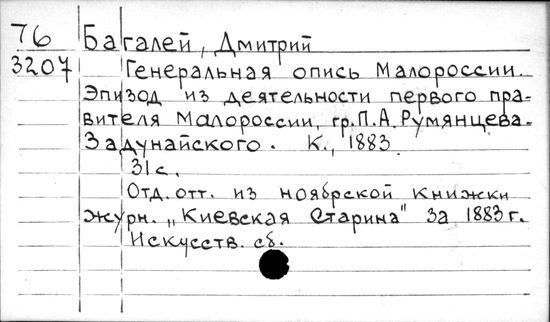 76 Багалей, Дмитрий
3207 Генеральная опись Малороссии.
Эпизод из деятельности первого пра-
вителя Малороссии, гр. П.А. Румянцева-
Задунайского. К., 1883
31 с.
Отд. отт. из ноябрской книжки
журн. „Киевская Старина" за 1883 г.
Искусств. сб.